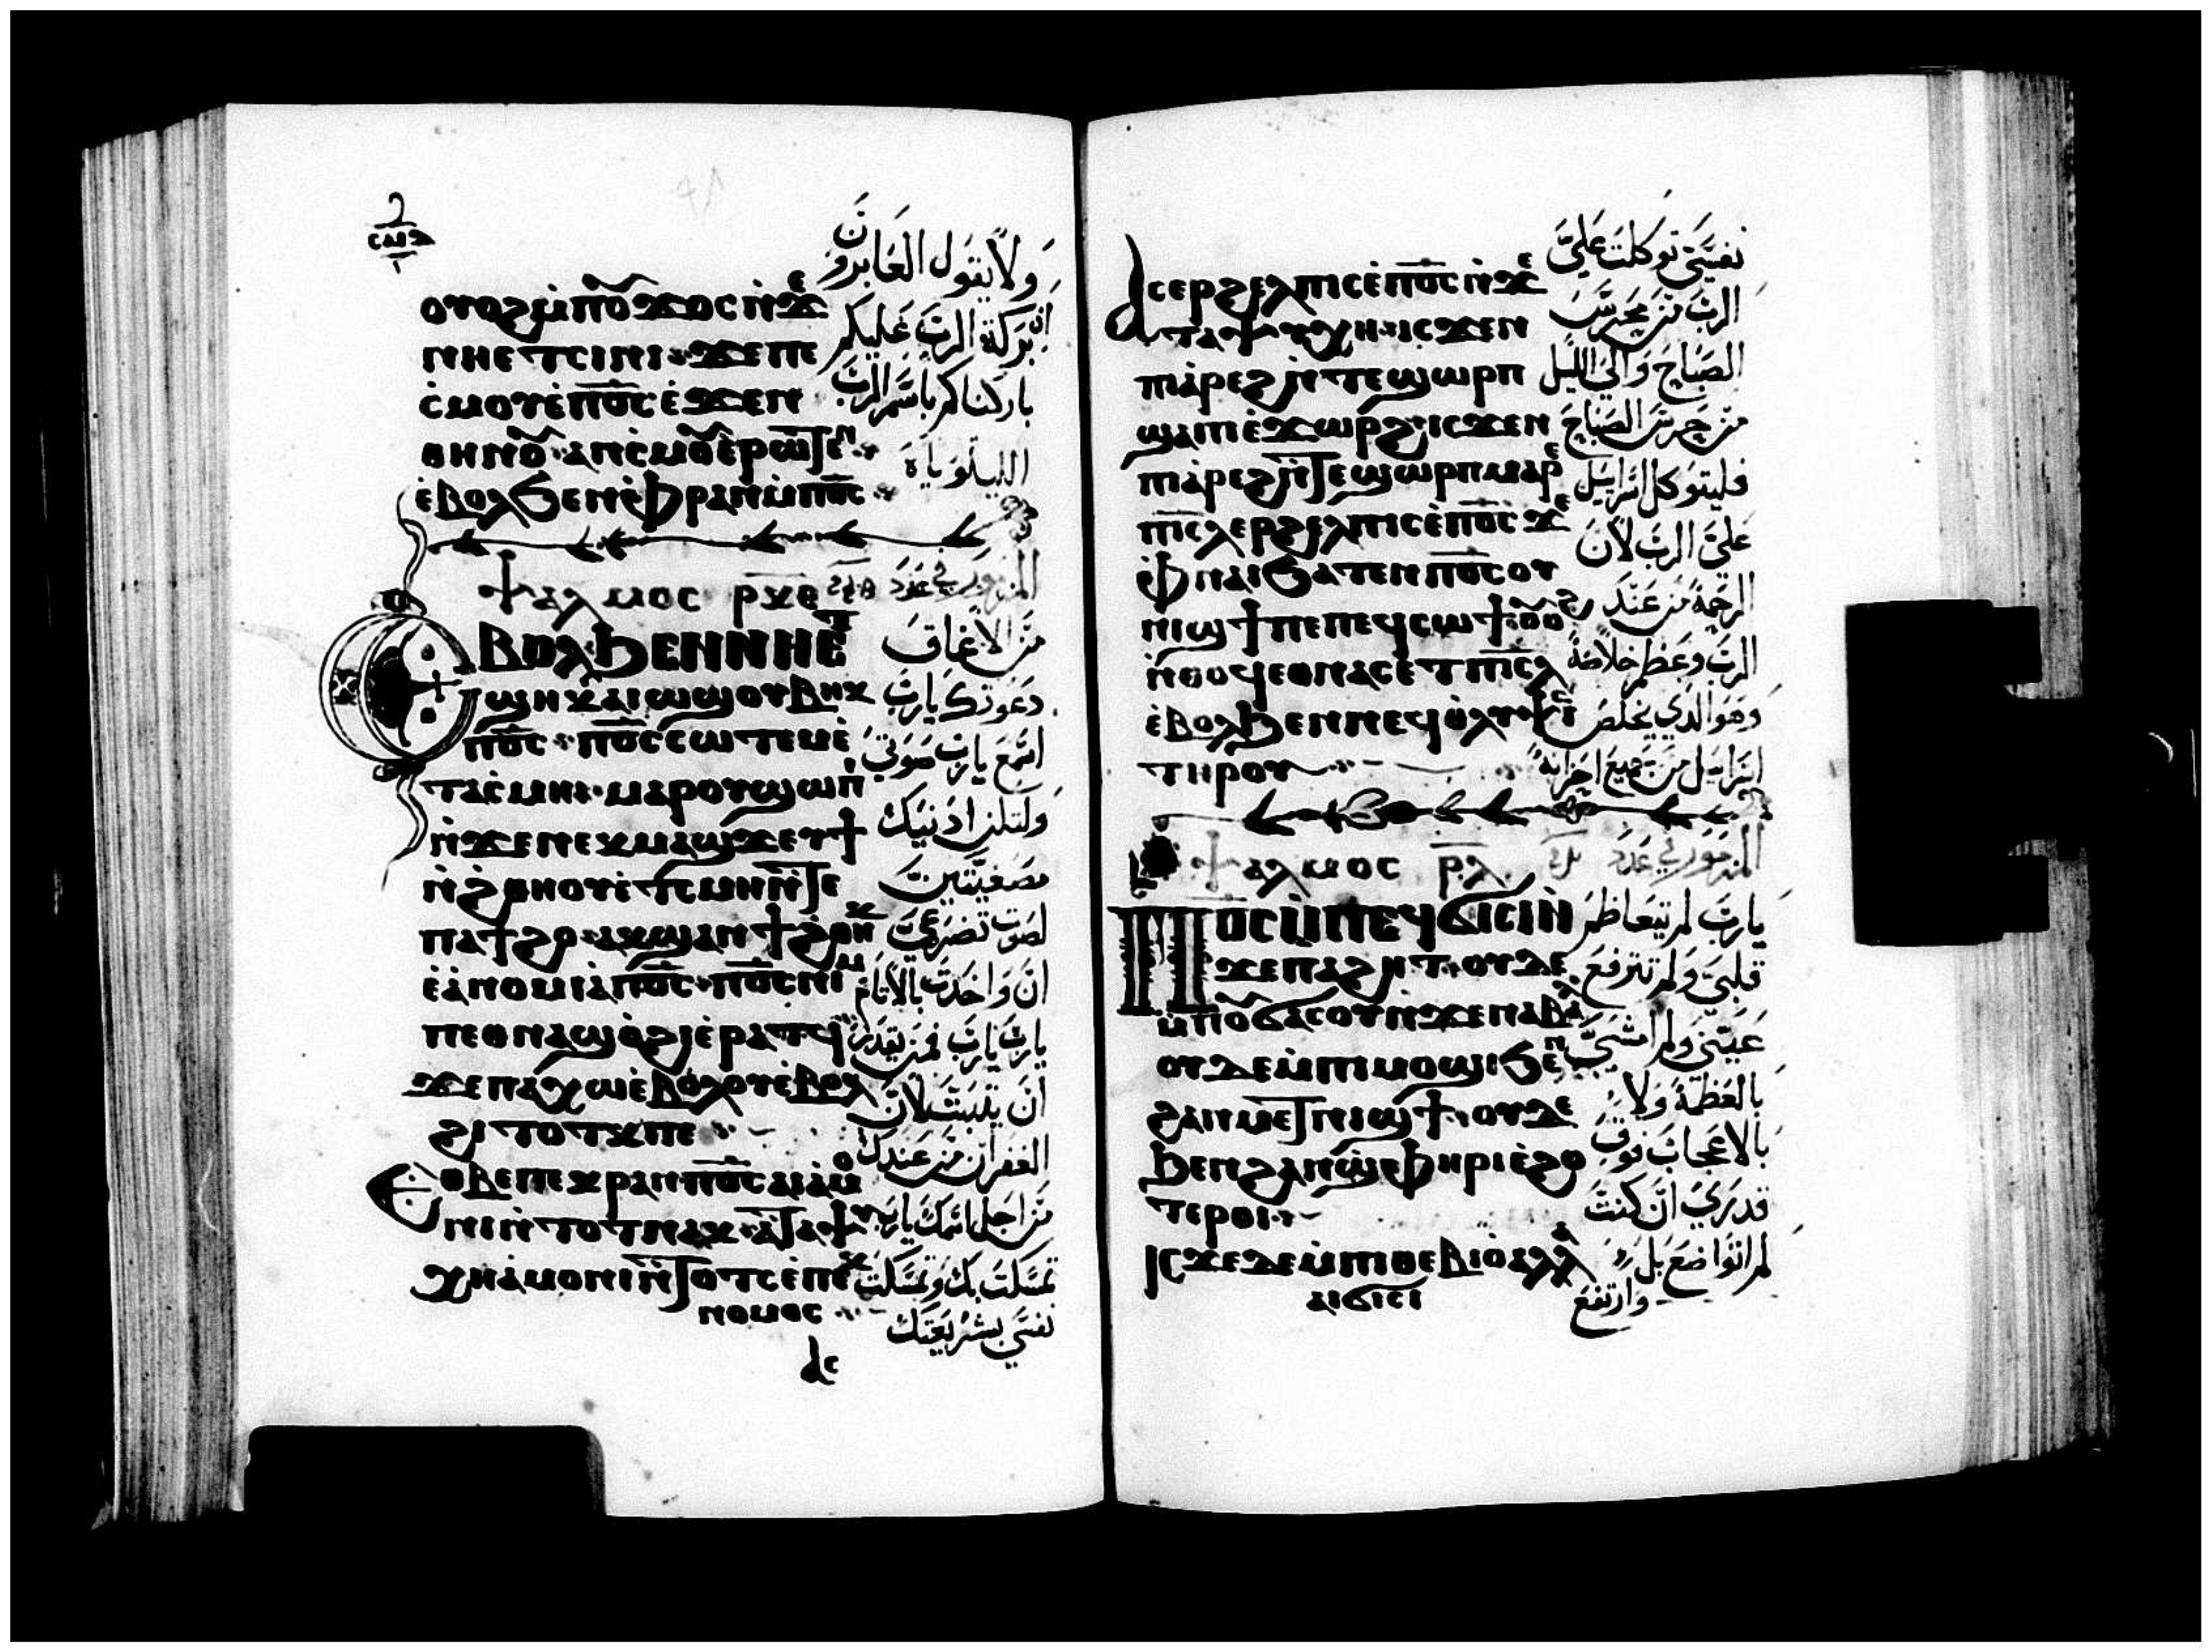 ⲟⲩⲟϩ ⲙ̇ⲡⲟⲩϫⲟⲥ ⲛ̇ϫⲉ
ⲛⲏⲉⲧⲥⲓⲛⲓ ϫⲉ ⲡⲉ
ⲥ̇ⲙⲟⲩ ⲙ̇ⲡ̅ⲟ̅ⲥ̅ ⲉ̇ϫⲉⲛ
ⲑⲏⲛⲟⲩ ⲁⲛⲥ̇ⲙⲟⲩ ⲉ̇ⲣⲱⲧⲉⲛ
ⲉ̇ⲃⲟⲗϧⲉⲛ ⲫ̇ⲣⲁⲛ ⲙ̇ⲡ̅ⲟ̅ⲥ̅
ولا يقول العابرون
ان بركة الرب عليكم
باركناكم باسم الرب
الليلوياه
ⲯⲁⲗⲙⲟⲥ ⲣ̅ⲕ̅ⲑ̅
المزمور في عدد
ⲉⲃⲟⲗϧⲉⲛ ⲛⲏⲉⲧ
ϣⲏⲕ ⲁⲓⲱϣ ⲟⲩⲃⲏⲕ
ⲡ̅ⲟ̅ⲥ̅ ⲡ̅ⲟ̅ⲥ̅ ⲥⲱⲧⲉⲙ ⲉ̇
ⲧⲁⲥ̇ⲙⲏ ⲙⲁⲣⲟⲩϣⲱⲡⲓ
ⲛ̇ϫⲉ ⲛⲉⲕⲙⲁϣϫ ⲉⲩϯ
ⲛ̇ϩ̇ⲑⲏⲟⲩ ⲉ̇ⲧ̇ⲥⲙⲏ ⲛ̇ⲧⲉ
ⲡⲁϯϩⲟ ⲁⲕϣⲁⲛϯϩ̇ⲑⲏⲕ
ⲉ̇ⲁ̇ⲛⲟⲙⲓⲁ ⲡ̅ⲟ̅ⲥ̅ ⲡ̅ⲟ̅ⲥ̅ ⲛⲓⲙ
ⲡⲉⲑⲛⲁϣⲟ̇ϩⲓ ⲉ̇ⲣⲁⲧϥ
ϫⲉ ⲡⲁⲭⲱ ⲉ̇ⲃⲟⲗ ⲟⲩⲉ̇ⲃⲟⲗ
ϩⲓⲧⲟⲧⲕ ⲡⲉ
ⲉⲑⲃⲉ ⲡⲉⲕⲣⲁⲛ ⲡ̅ⲟ̅ⲥ̅ ⲁⲓⲁ̇ⲙⲟ
ⲛⲓ ⲛ̇ⲧⲟⲧ ⲛⲁⲕ ⲁ̇ⲧⲁⲯⲩ
ⲭⲏ ⲁ̇ⲙⲟⲛⲓ ⲛ̇ⲧⲟⲧⲥ ⲉ̇ⲡⲉⲕ
ⲛⲟⲙⲟⲥ
من الاعماق
دعوتك يارب
اسمع يارب صوتي
ولتكن اذنيك
مصغيتين
لصوت تضرعي
ان واخدت بالاثام
يارب يارب فمن يقدر
ان يثبت لان
الغفران من عندك
من اجل اسمك يارب
تمسكت بك وتمسكت
نفسي بشريعتك
ⲁⲥ
ⲁⲥⲉⲣϩⲉⲗⲡⲓⲥ ⲉ̇ⲡ̅ⲟ̅ⲥ̅ ⲛ̇ϫⲉ
ⲧⲁⲯⲩⲭⲏ ⲓⲥϫⲉⲛ
ⲡⲓⲁ̇ⲣⲉϩ ⲛ̇ⲧⲉ ϣⲱⲣⲡ
ϣⲁ ⲡⲓⲉ̇ϫⲱⲣϩ ⲓⲥϫⲉⲛ
ⲡⲓⲁ̇ⲣⲉϩ ⲛ̇ⲧⲉ ϣⲱⲣⲡ ⲙⲁⲣⲉ
ⲡⲓ̅ⲥ̅ⲗ̅ ⲉⲣϩⲉⲗⲡⲓⲥ ⲉ̇ⲡ̅ⲟ̅ⲥ̅ ϫⲉ
ⲫ̇ⲛⲁⲓ ϧⲁⲧⲉⲛ ⲡ̅ⲟ̅ⲥ̅ ⲟⲩ
ⲛⲓϣϯ ⲡⲉ ⲡⲉϥⲥⲱϯ ⲟⲩⲟϩ
ⲛ̇ⲑⲟϥ ⲉⲑⲛⲁⲥⲉⲧ ⲡⲓ̅ⲥ̅ⲗ̅
ⲉ̇ⲃⲟⲗϧⲉⲛ ⲛⲉϥⲟ̇ⲗⲩⲯⲓⲥ
ⲧⲏⲣⲟⲩ
نفسي توكلت علي
الرب من محرس
الصباح والي الليل
من حرس الصباح
فليتوكل اسراييل
علي الرب لان
الرحمة من عند
الرب وعظيم خلاصه
وهو الذي يخلص
اسراييل من جميع احزانه
ⲯⲁⲗⲙⲟⲥ ⲣ̅ⲗ̅
المزمور في عدد
ⲡ̅ⲟ̅ⲥ̅ ⲙ̇ⲡⲉϥϭⲓⲥⲓ ⲛ̇
ϫⲉ ⲡⲁϩⲏⲧ ⲟⲩⲇⲉ
ⲙ̇ⲡⲟⲩϭⲁⲥⲟⲩ ⲛ̇ϫⲉ ⲛⲁⲃⲁⲗ
ⲟⲩⲇⲉ ⲙ̇ⲡⲓⲙⲟϣⲓ ϧⲉⲛ
ϩⲁⲛⲙⲉⲧⲛⲓϣϯ ⲟⲩⲇⲉ
ϧⲉⲛ ϩⲁⲛϣ̇ⲫⲏⲣⲓ ⲉ̇ϩⲟ
ⲧⲉⲣⲟⲓ
ⲓⲥϫⲉ ⲇⲉ ⲙ̇ⲡⲓⲑⲉⲃⲓⲟ ⲁⲗⲗⲁ
ⲁⲓϭⲓⲥⲓ
يارب لم يتعاظم
قلبي ولم ترتفع
عيني ولم امشي
بالعظمة ولا
بالاعجاب فوق
قدري ان كنت
لم اتواضع بل
وارتفع